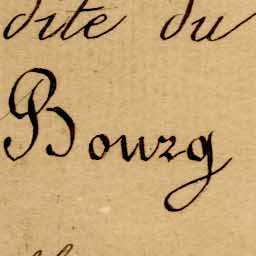 dite du
Bourg